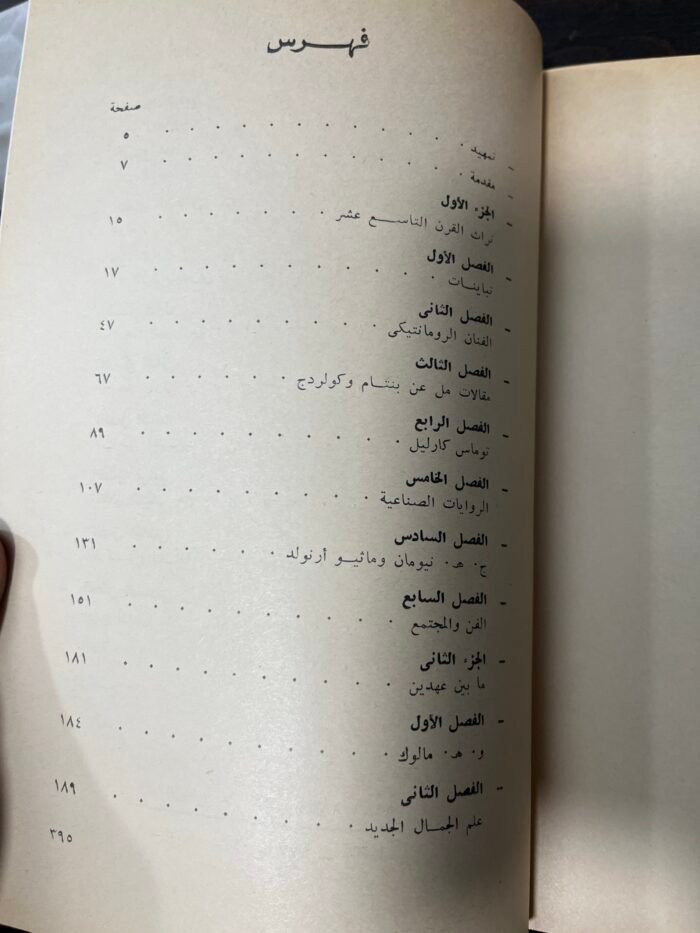 فهرس
صفحة
- تمهيد . . . . . . . . . . . ٥
- مقدمة . . . . . . . . . . . ٧
- الجزء الأول
تراث القرن التاسع عشر . . . . . . ١٥
- الفصل الأول
تباينات . . . . . . . . . . . ١٧
- الفصل الثانى
الفنان الرومانتيكى . . . . . . . . . ٤٧
- الفصل الثالث
مقالات مل عن بنتام وكولردج . . . . . . ٦٧
- الفصل الرابع
توماس كارليل . . . . . . . . . . ٨٩
- الفصل الخامس
الروايات الصناعية . . . . . . . . . ١٠٧
- الفصل السادس
ج. ه. نيومان وماثيو أرنولد . . . . . . ١٣١
- الفصل السابع
الفن والمجتمع . . . . . . . . . ١٥١
- الجزء الثانى
ما بين عهدين . . . . . . . . . ١٨١
- الفصل الأول
و. ه. مالوك . . . . . . . . . ١٨٤
- الفصل الثانى
علم الجمال الجديد . . . . . . . . . ١٨٩
٣٩٥